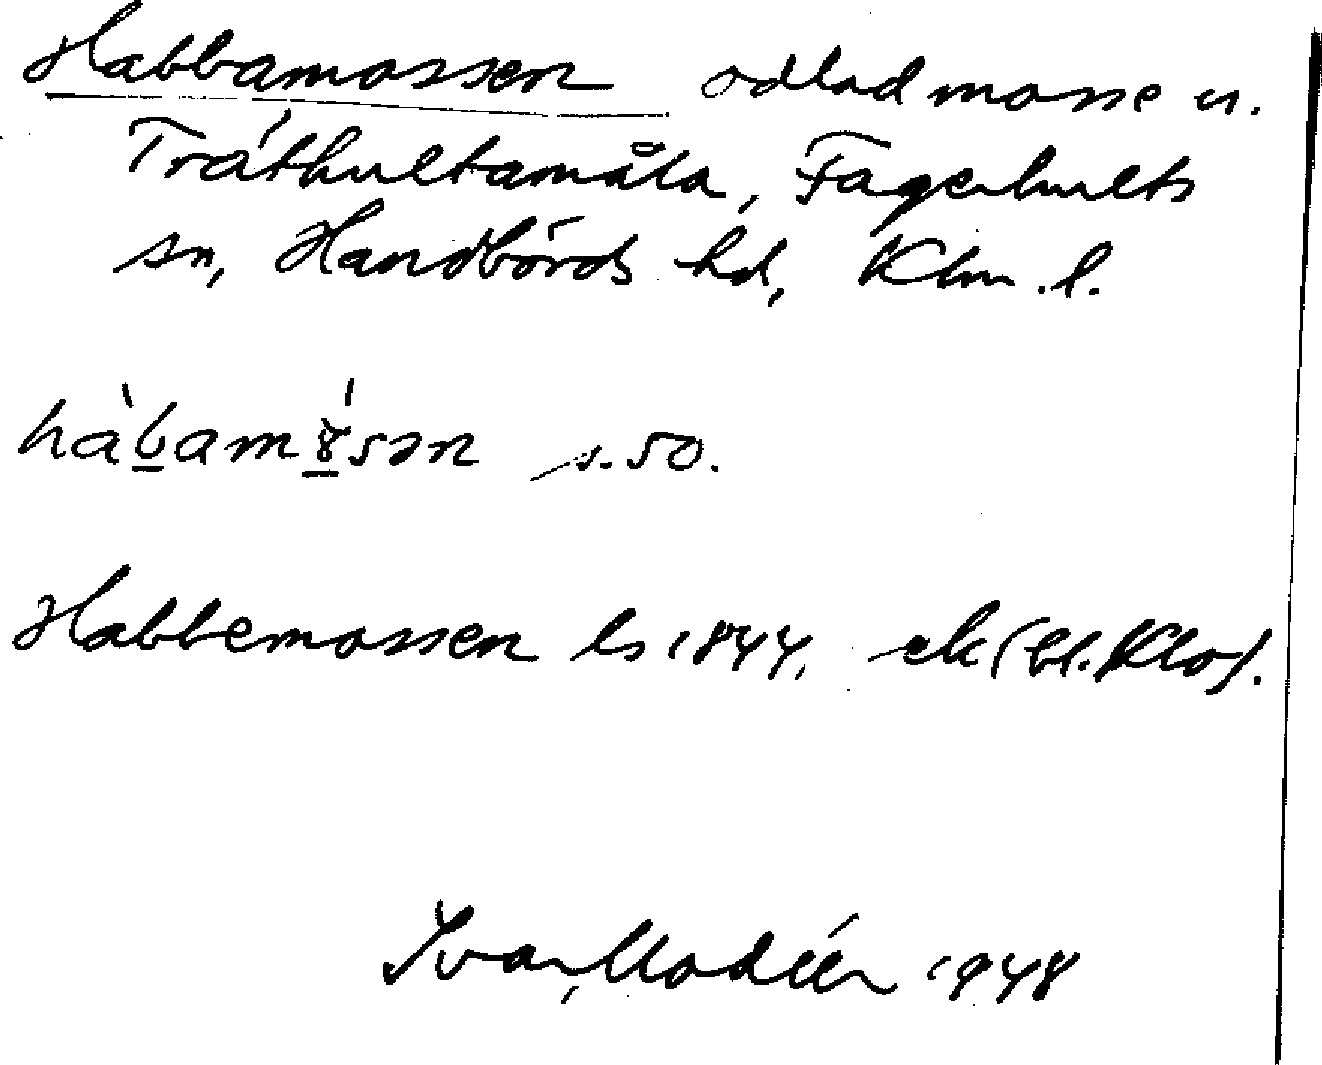 Habbamossen odlad mosse u.
Tråthultamåla, Fagerhults
sn, Handbörds hd, Klm. l.
hàbamɤ́sən s. 50.
Habbemossen ls 1844, ek (bl. Klo).
Ivar Modéer 1948